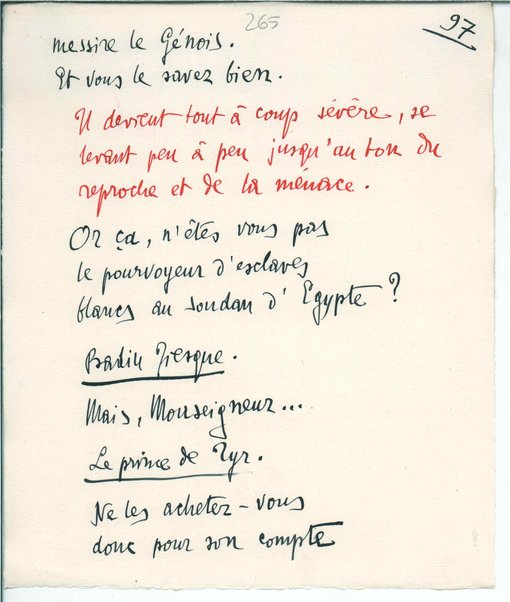 265
97
messire le Génois.
Et vous le savez bien.
Il devient tout à coup sévère, se
levant peu à peu jusqu'au ton du
reproche et de la ménace.
Or ça, n'êtes vous pas
le pourvoyeur d'esclaves
blancs au soudan d'Egypte ?
Badin Fiesque.
Mais, Monseigneur...
Le prince de Tyr.
Ne les achetez-vous
donc pour son compte